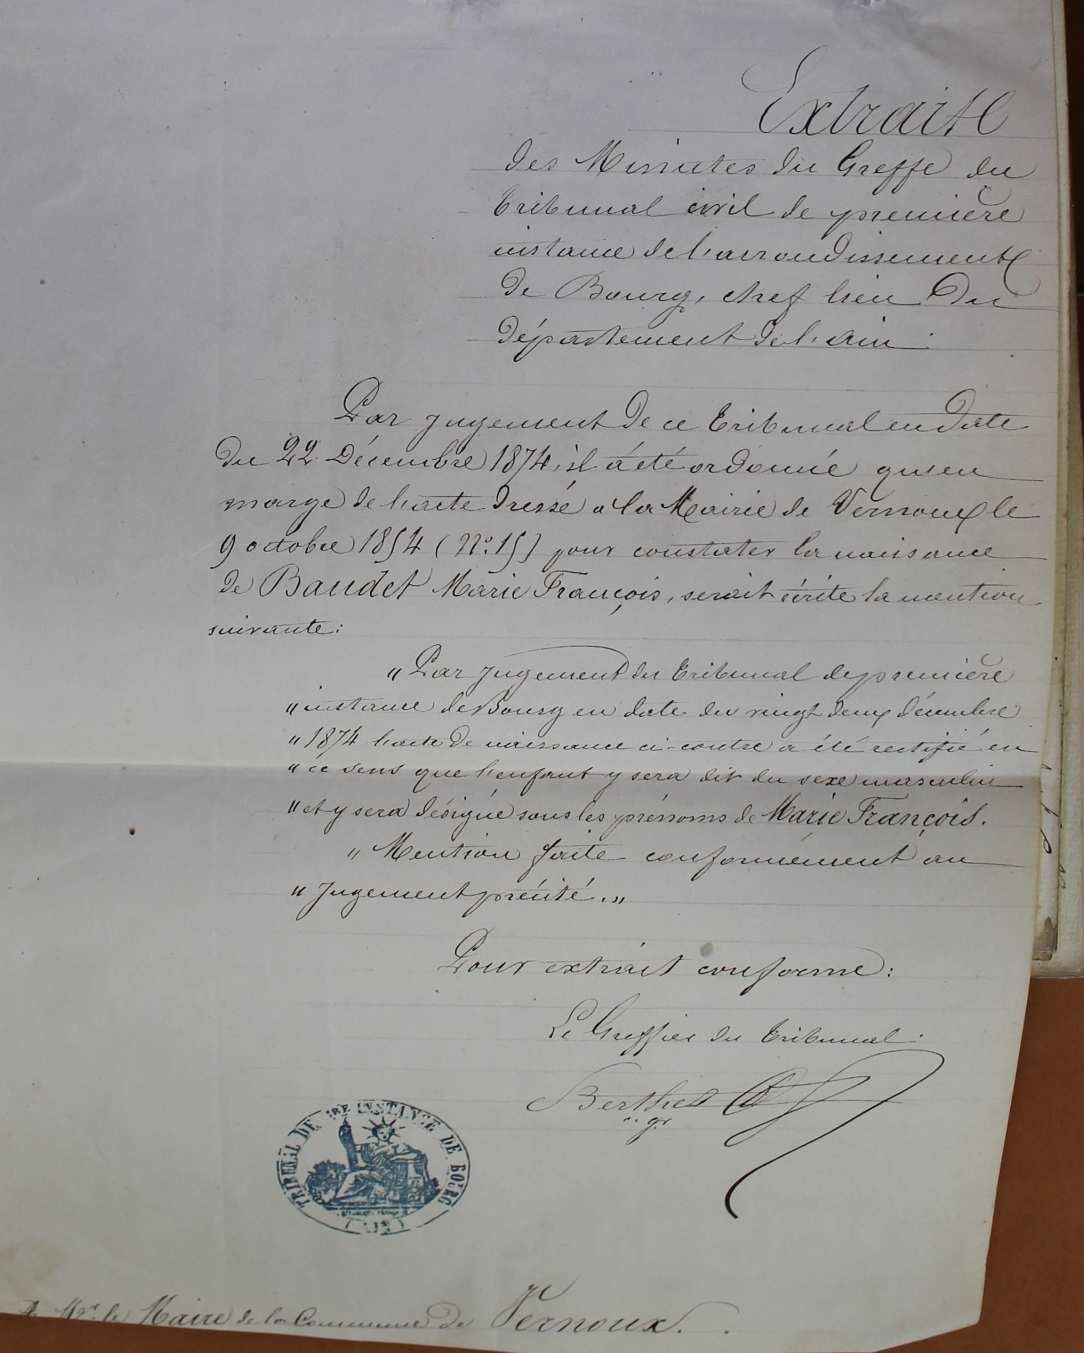 Extrait
des Minutes du Greffe du
tribunal civil de première
instance de l'arrondissement
de Bourg, chef lieu Du
département de l'ain.
Par jugement de ce tribunal en date
du 22 Décembre 1874, il a été ordonné qu'en
marge de l'acte dressé a la Mairie de Vernoux le
9 octobre 1854 (N° 15) pour constater la naissance
de Baudet Marie François, serait écrite la mention
suivante:
" Par jugement du tribunal de première
" instance de Bourg en date du vingt deux décembre
" 1874 l'acte de naissance ci-contre a été rectifié en
" ce sens que l'enfant y sera dit du sexe masculin
" et y sera désigné sous les prénoms de Marie François.
" Mention faite conformément au
" jugement précité. "
Pour extrait conforme:
Le Greffier du tribunal.
Berthet
gr
TRIBUNAL DE 1RE INSTANCE DE BOURG
(AIN)
A Mr. le Maire de la Commune de Vernoux.